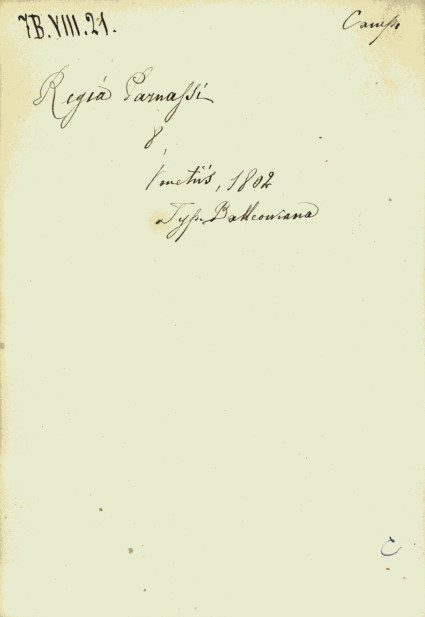 7B.VIII.21.
Camp.
Regia Parnassi
8,
Venetiis, 1802
Typ. Balleoniana
C